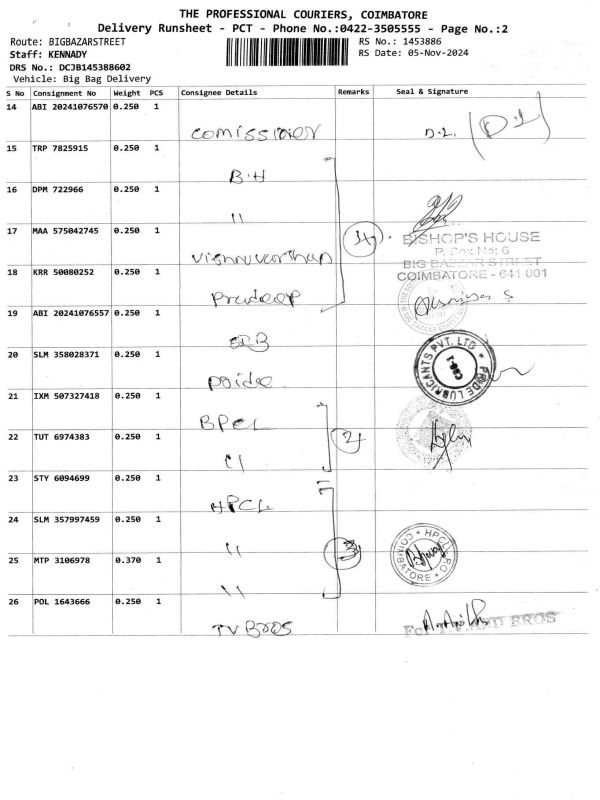 THE PROFESSIONAL COURIERS, COIMBATORE
Delivery Runsheet - PCT - Phone No.:0422-3505555 - Page No.:2
Route: BIGBAZARSTREET
RS No.: 1453886
Staff: KENNADY
RS Date: 05-Nov-2024
DRS No.: DCJB145388602
Vehicle: Big Bag Delivery
S No Consignment No Weight PCS Consignee Details Remarks Seal & Signature
14 ABI 20241076570 0.250 1
comissioner D.L.
15 TRP 7825915 0.250 1
B.H
16 DPM 722966 0.250 1
11
17 MAA 575042745 0.250 1
Vishnuvarthan 4
BISHOP'S HOUSE
P. Box No: 6
BIG BAZAAR STREET
COIMBATORE - 641 001
18 KRR 50080252 0.250 1
Pradeep
19 ABI 20241076557 0.250 1
20 SLM 358028371 0.250 1
PRIDE LUBRICANTS PVT. LTD.
CBE-1
21 IXM 507327418 0.250 1
BPCL
22 TUT 6974383 0.250 1
11 2
23 STY 6094699 0.250 1
HPCL
24 SLM 357997459 0.250 1
11 3
HPCL RO
COIMBATORE
25 MTP 3106978 0.370 1
11
26 POL 1643666 0.250 1
TV BROS
For BROS